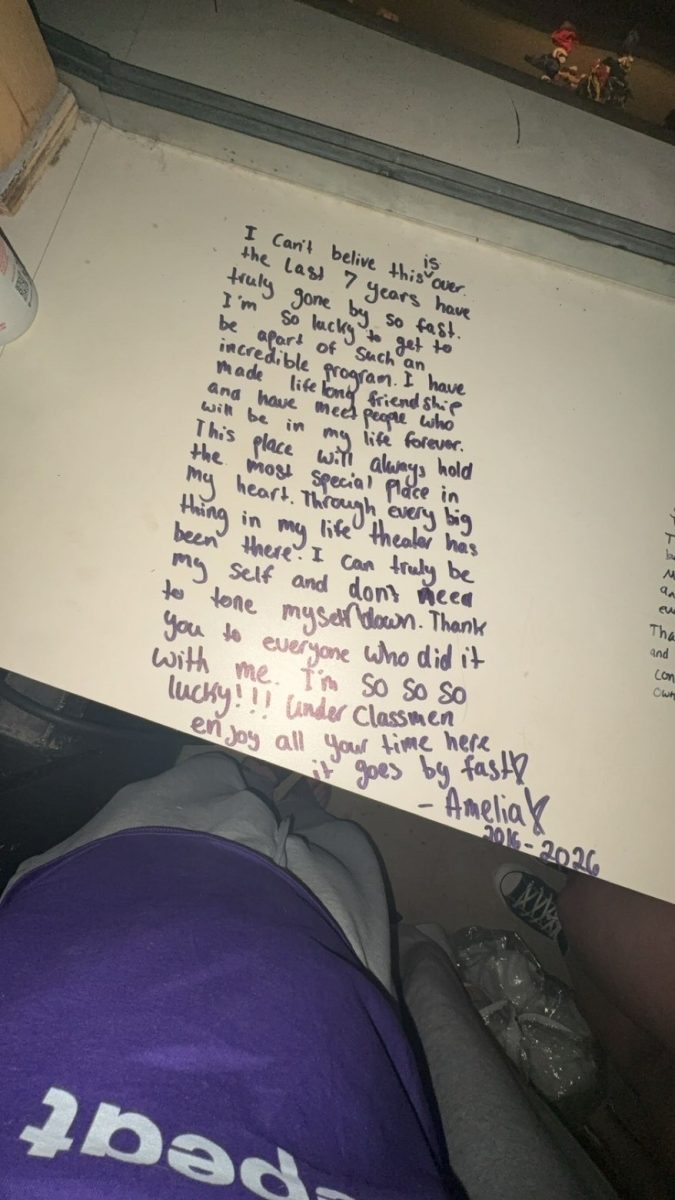 I can't belive this is over.
the last 7 years have
truly gone by so fast.
I'm so lucky to get to
be apart of such an
incredible program. I have
made lifelong friendship
and have meet people who
will be in my life forever.
This place will always hold
the most special place in
my heart. Through every big
thing in my life theater has
been there. I can truly be
my self and don't need
to tone myself down. Thank
you to everyone who did it
with me. I'm so so so
lucky!!! Under Classmen
enjoy all your time here
it goes by fast♡
- Amelia♡
2016-2026
Tha
and
con
own
peat